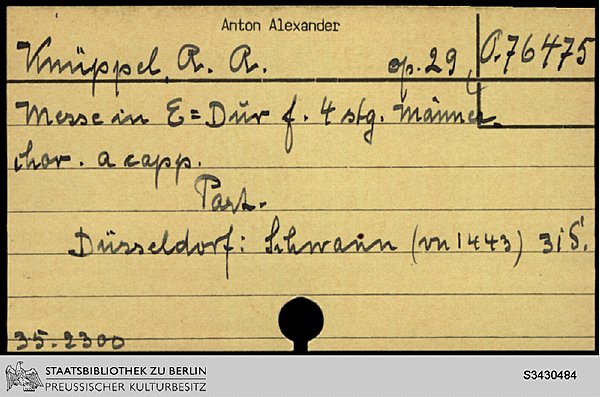 Anton Alexander
Knüppel, A. A. op. 29 O. 76475
Messe in E=Dur f. 4 stg. Männer-
chor. a capp.
Part.
Düsseldorf: Schwann (vn 1443) 31 S.
35.2300
STAATSBIBLIOTHEK ZU BERLIN
PREUSSISCHER KULTURBESITZ
S3430484